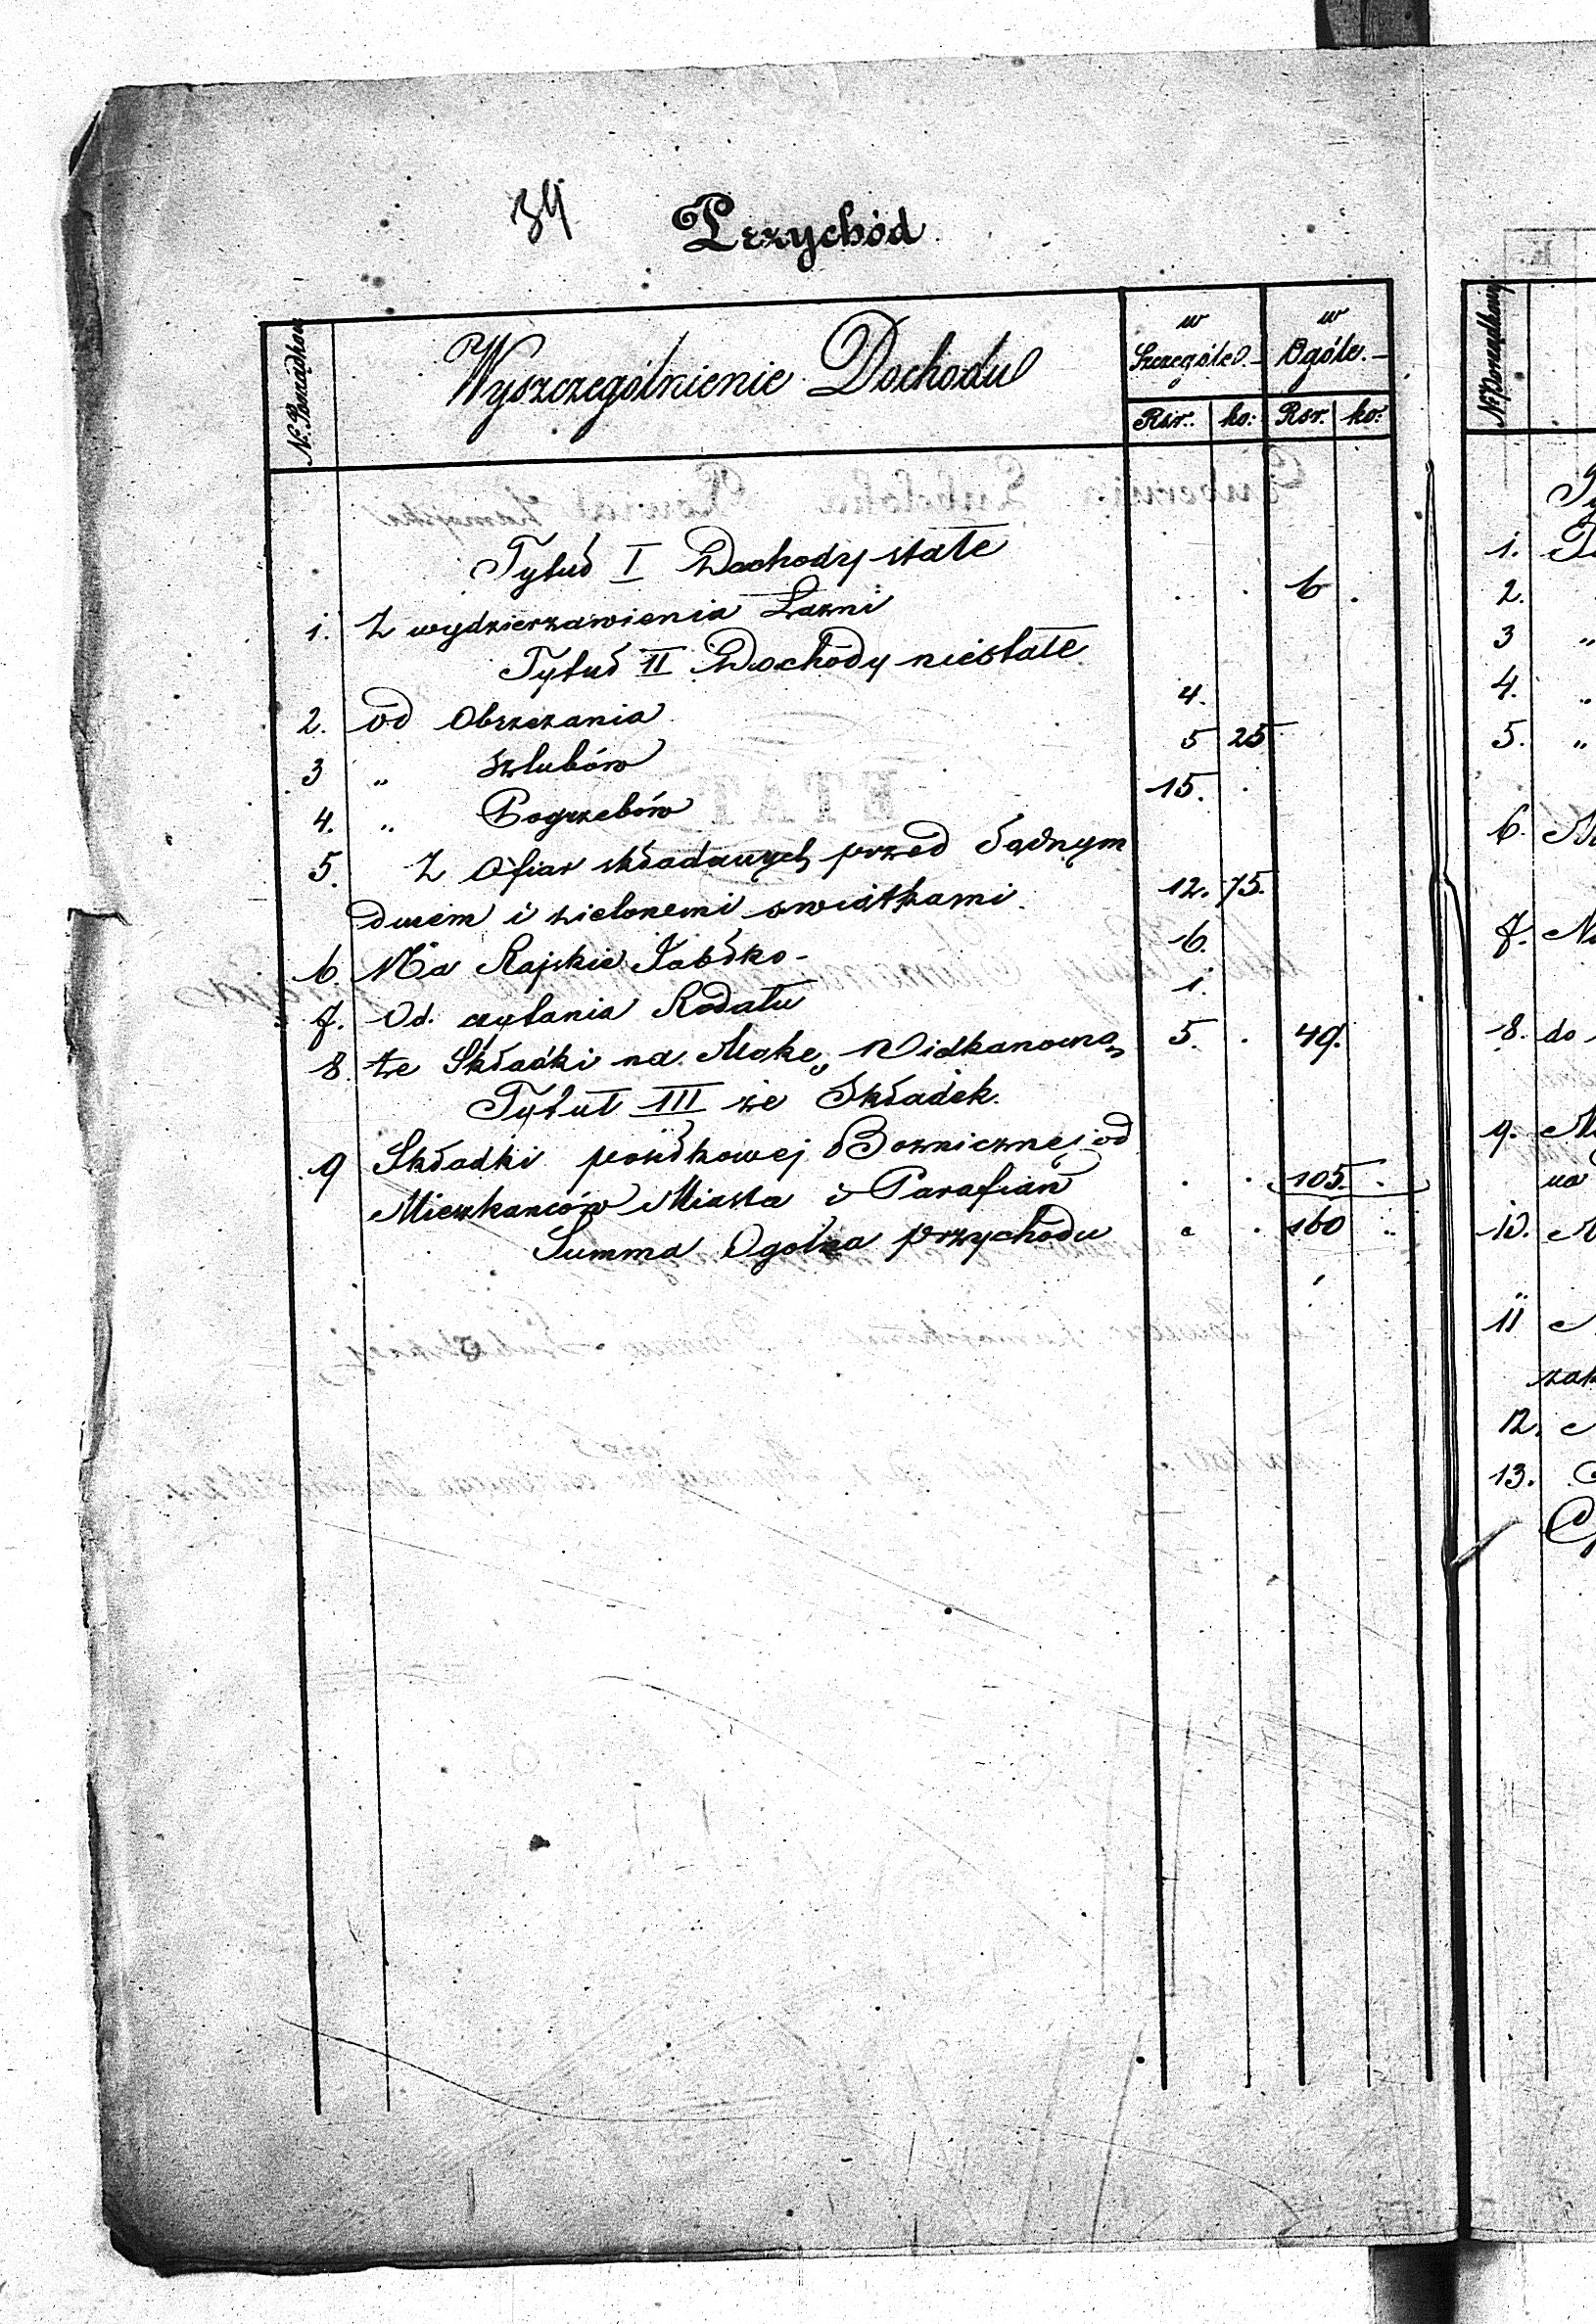 34
Przychód
№ Porządkow
Wyszczególnienie Dochodu
w Szczególe.
w Ogóle.
Rsr. ko: Rsr. ko:
Tytuł I Dochody stałe
1. Z wydzierzawienia Łazni . . 6 .
Tytuł II Dochody niestałe
2. od Obrzezania 4.
3 „ Szlubów 5 25
4. „ Pogrzebów 15. .
5. Z Ofiar składanych przed Sądnym
dniem i zielonemi swiątkami. 12. 75.
6. Na Rajskie Jabłko - 6.
7. Od czytania Rodału 1.
8. ze Składki na Mąkę Widkanocną 5. . 49.
Tytuł III ze Składek.
9 Składki posiłkowej Boznicznej od
Mieszkanców Miasta i Parafian . . 105. .
Summa Ogolna przychodu . . 160 ..
№ Porządkowy
1.
2.
3 „
4. „
5. „
6.
7.
8. do
9.
na
10.
11
zak
12.
13.